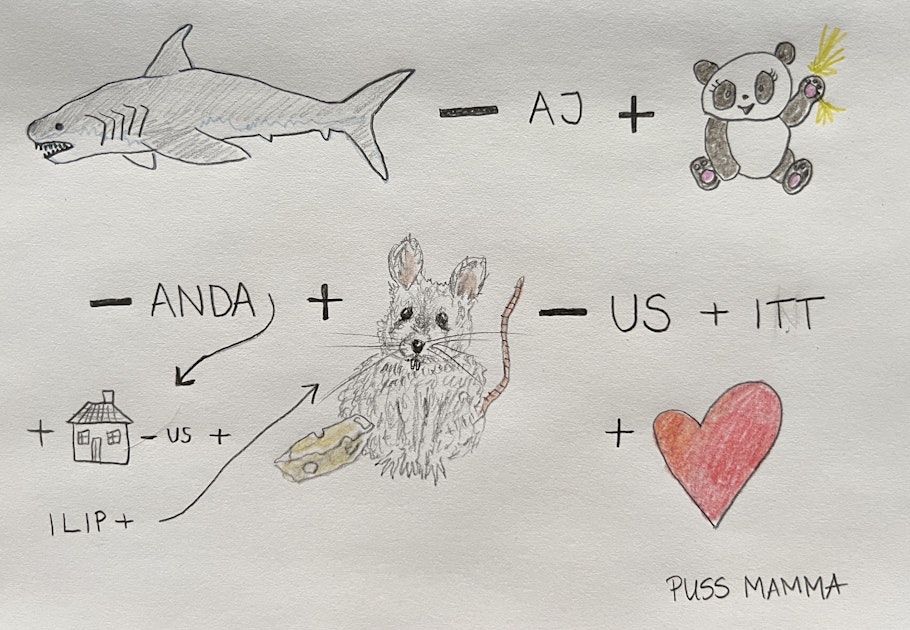 — AJ +
— ANDA, + — US + ITT
+ — US + +
ILIP +
PUSS MAMMA